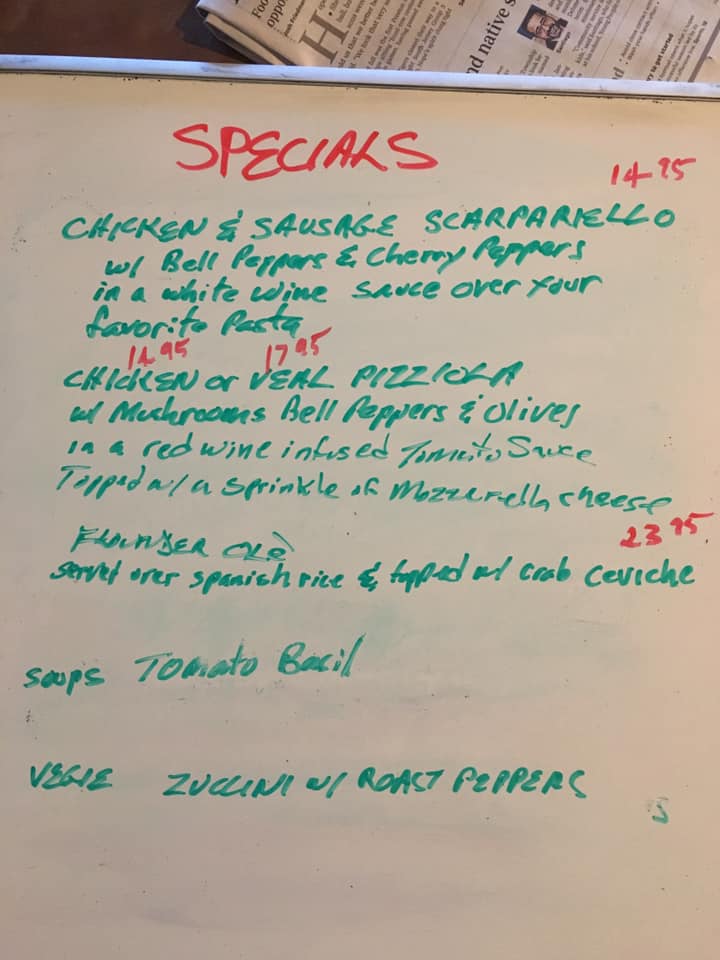 Foo
oppo
H
nd native s
ry to get started
SPECIALS
14 95
CHICKEN & SAUSAGE SCARPARIELLO
w/ Bell Peppers & Cherry Peppers
in a white wine sauce over your
favorite Pasta
14 95 17 95
CHICKEN or VEAL PIZZIOLA
w/ Mushrooms Bell Peppers & Olives
in a red wine infused Tomato Sauce
Topped w/ a sprinkle of Mozzerella cheese
23 95
FLOUNDER OLÈ
served over spanish rice & topped w/ crab ceviche
soups Tomato Basil
VEGIE ZUCCINI w/ ROAST PEPPERS
S